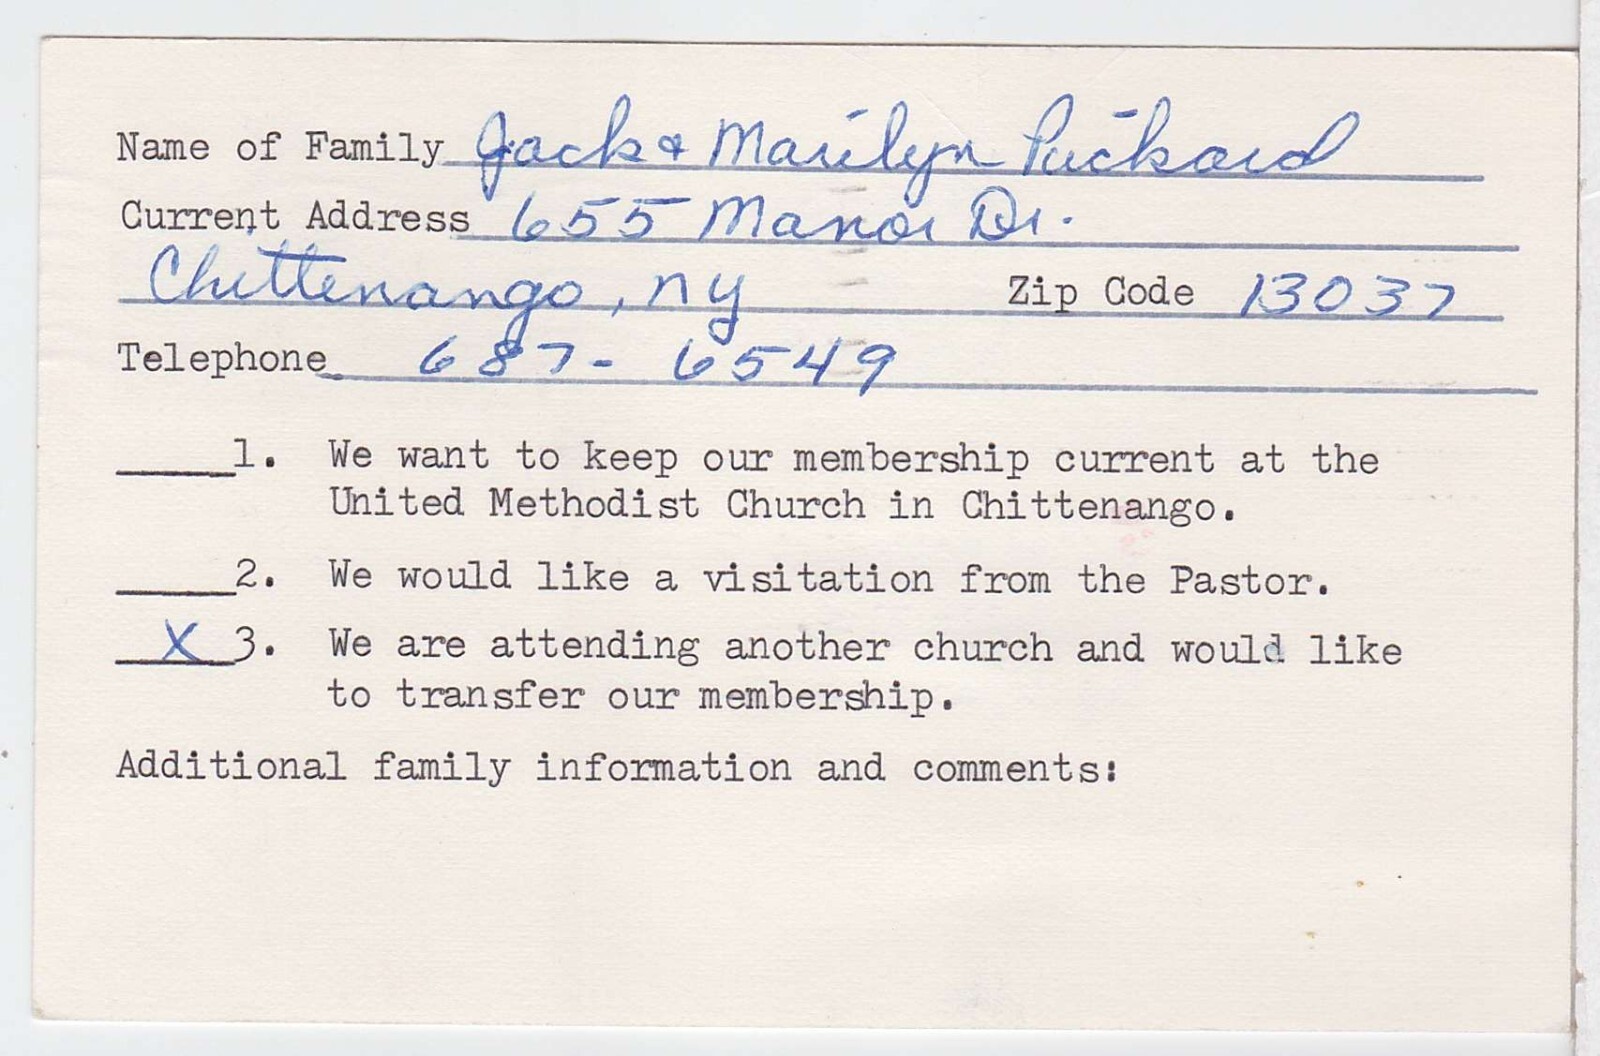 Name of Family Jack & Marilyn Puckard
Current Address 655 Manor Dr.
Chittenango, NY Zip Code 13037
Telephone 687-6549
____1. We want to keep our membership current at the
United Methodist Church in Chittenango.
____2. We would like a visitation from the Pastor.
X 3. We are attending another church and would like
to transfer our membership.
Additional family information and comments: